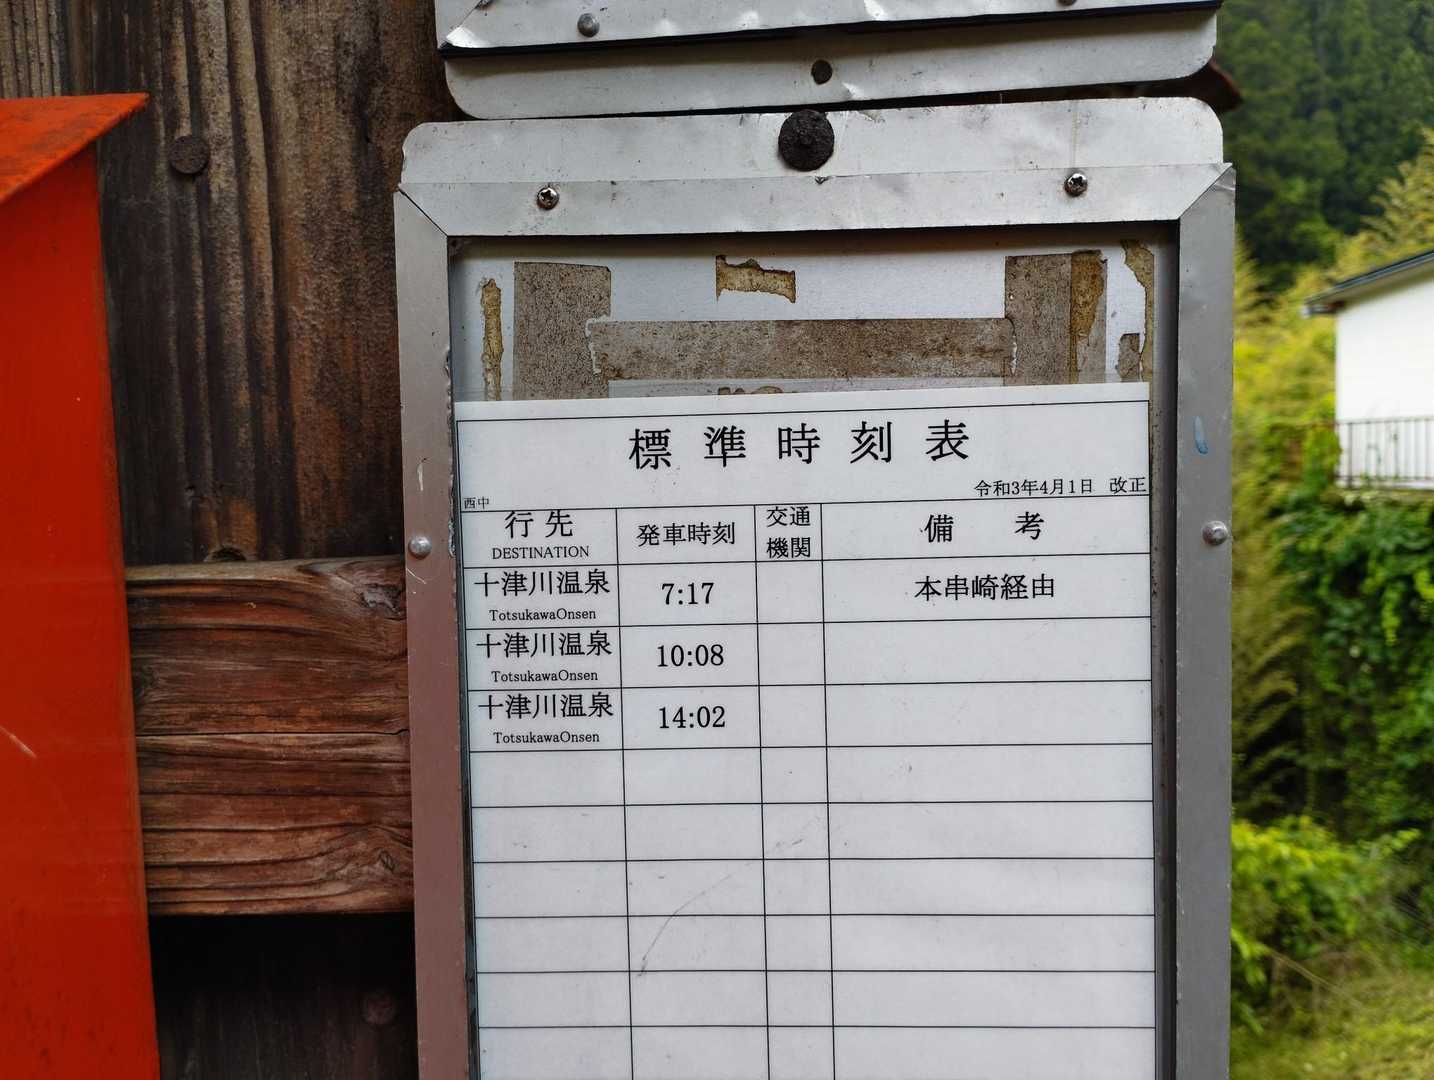 標準時刻表
西中
令和3年4月1日 改正
行先 発車時刻 交通機関 備考
DESTINATION
十津川温泉 7:17 本串崎経由
TotsukawaOnsen
十津川温泉 10:08
TotsukawaOnsen
十津川温泉 14:02
TotsukawaOnsen